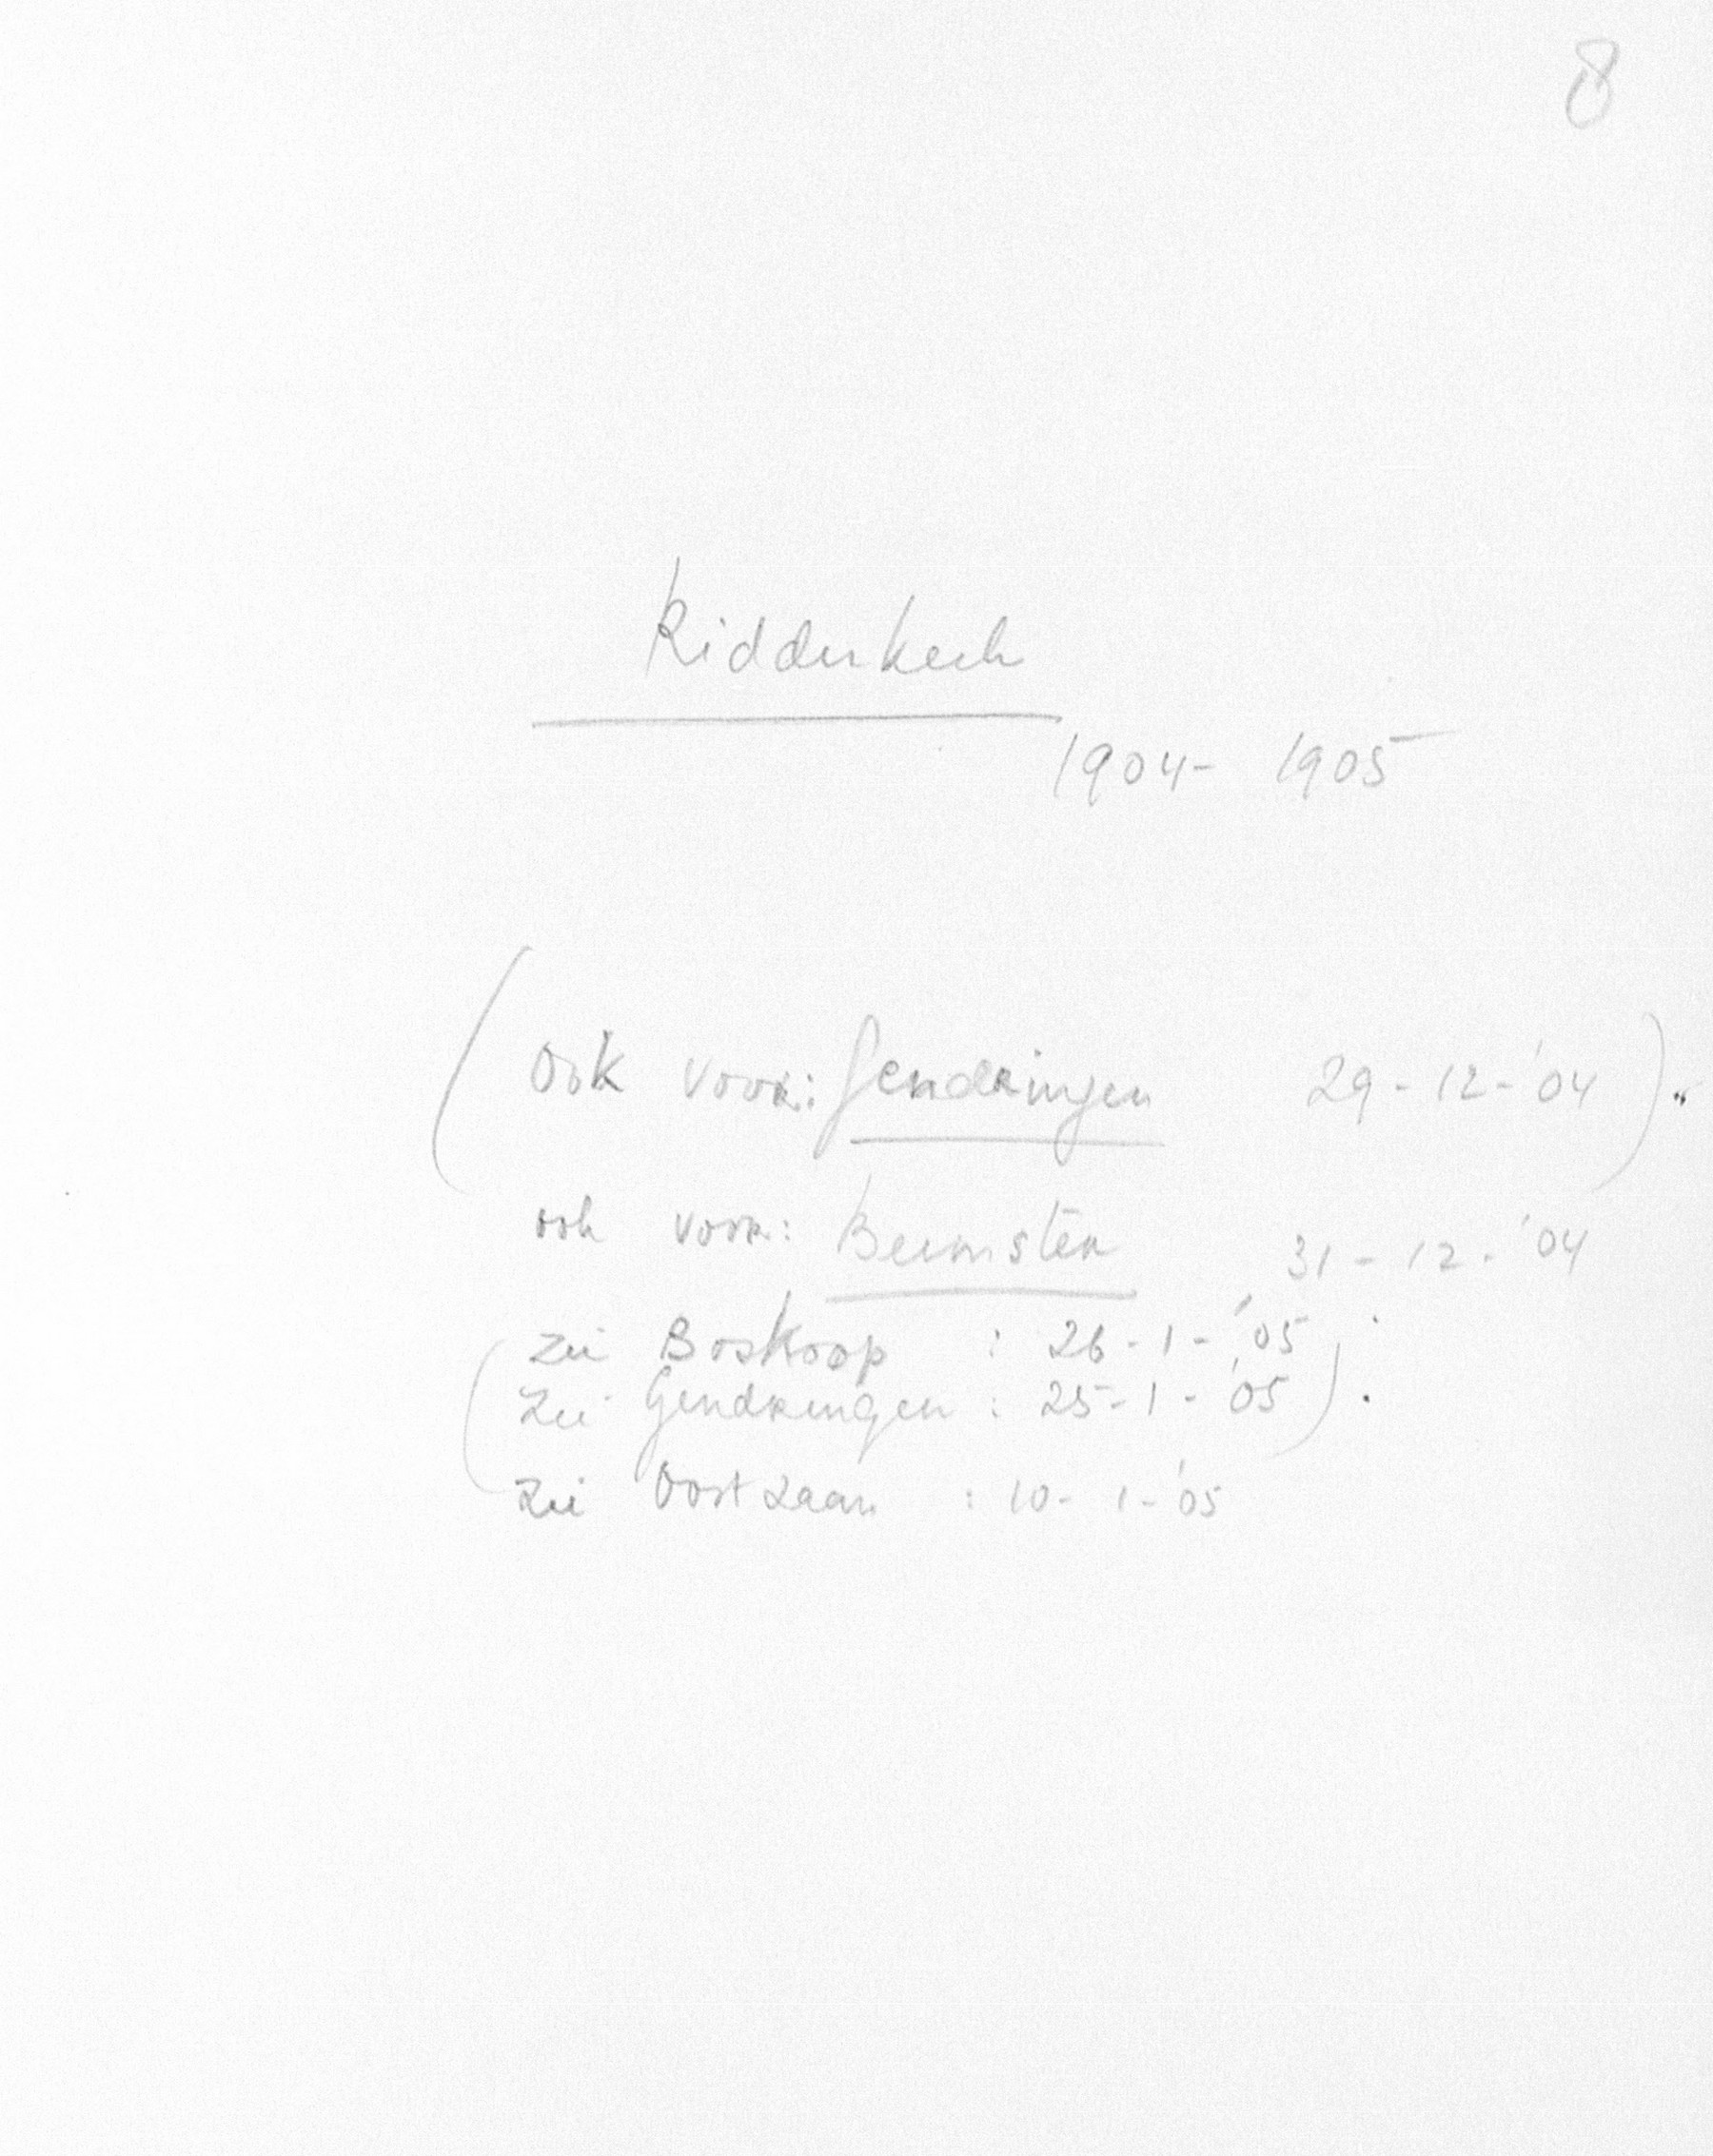 8
Ridderkerk
1904- 1905
(Ook voor: Gendringen 29-12-'04).
ook voor: Beemster 31-12-'04
zie Boskoop : 26-1-'05
(zie Gendringen : 25-1-'05).
zie Oostzaan : 10-1-'05